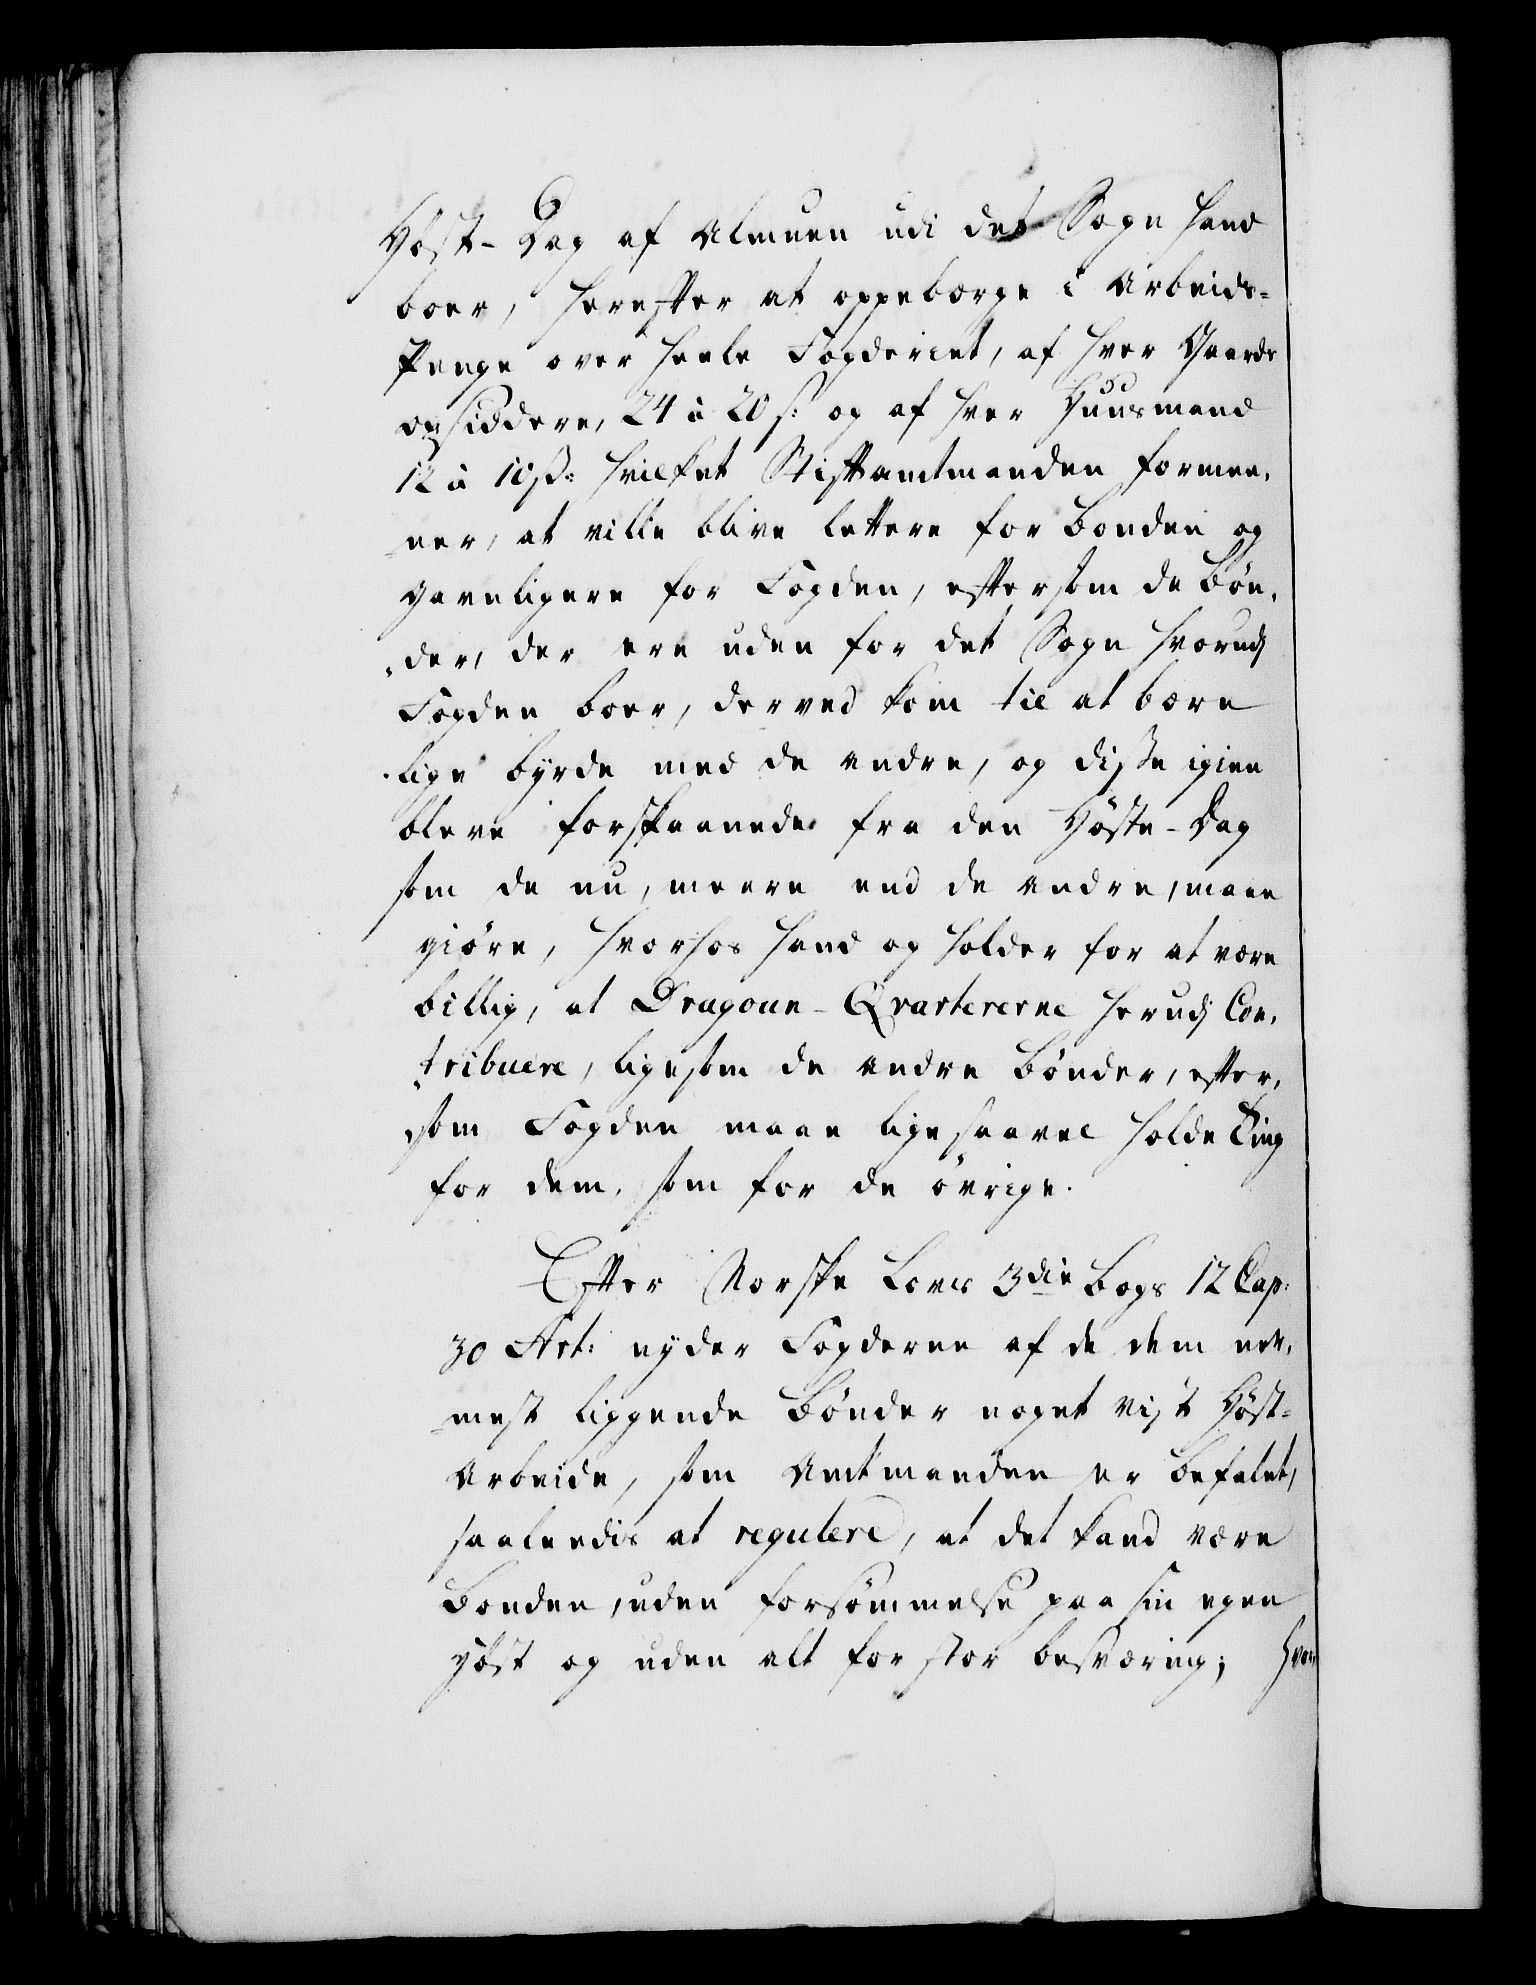 Høst-Dag af Almuen udi det Sogn hand
boer, herefter at oppebørge i Arbeids-
Penge over heele Fogderiet, af hver Gaards
opsiddere, 24 à 20 s: og af hver Huusmand
12 à 10 ß: hvilket Stiftamtmanden formee,
ner, at ville blive lettere for bonden og
gavnligere for Fogden, eftersom de bøn,
„der, der ere uden for det Sogn hvorudj
Fogden boer, derved kom til at bære
lige byrde med de andre, og disse igien
bleve forskaanede fra den Høste-Dag
som de nu, meere end de andre, maae
giöre, hvorhos hand og holder for at være
billig, at Dragoun-Qvartererne herudj Con,
„tribuere, ligesom de andre bønder, efter,
„som Fogden maae ligesaavel holde Ting
for dem, som for de övrige.
Efter Norske Lovs 3die bogs 12 Cap:
30 Art: nyder Fogderne af de dem nær,
mest liggende bønder noget vist Høst-
Arbeide, som Amtmanden er befalet,
saaleedis at regulere, at det kand være
bonden, uden forsömmelse paa sin egen
Høst og uden alt for stor besværing; hvor